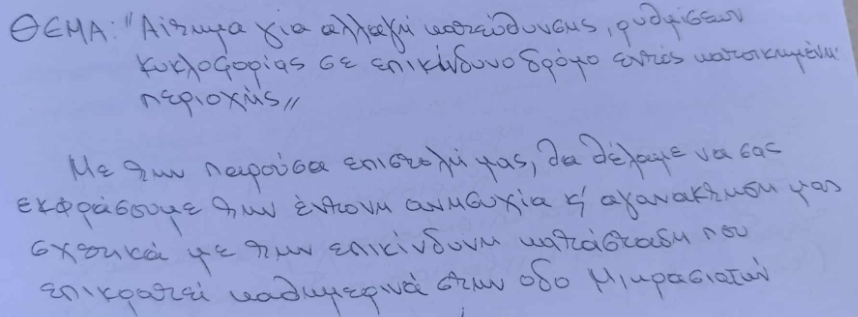 ΘΕΜΑ: "Αίτημα για αλλαγή κατεύθυνσης, ρυθμίσεων
κυκλοφορίας σε επικίνδυνο δρόμο εντός κατοικημένη
περιοχής"
Με την παρούσα επιστολή μας, θα θέλαμε να σας
εκφράσουμε την έντονη ανησυχία κ' αγανάκτηση μας
σχετικά με την επικίνδυνη κατάσταση που
επικρατεί καθημερινά στην οδο Μικρασιατών